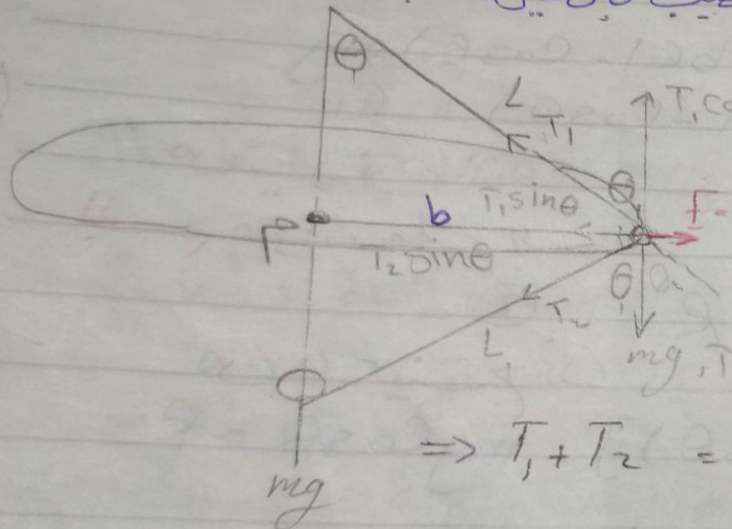 θ
L
T₁
T₁ C
θ
b
T₁ sinθ
F
T₂ sinθ
θ
T₂
L
mg, T
⇒ T₁ + T₂ =
mg